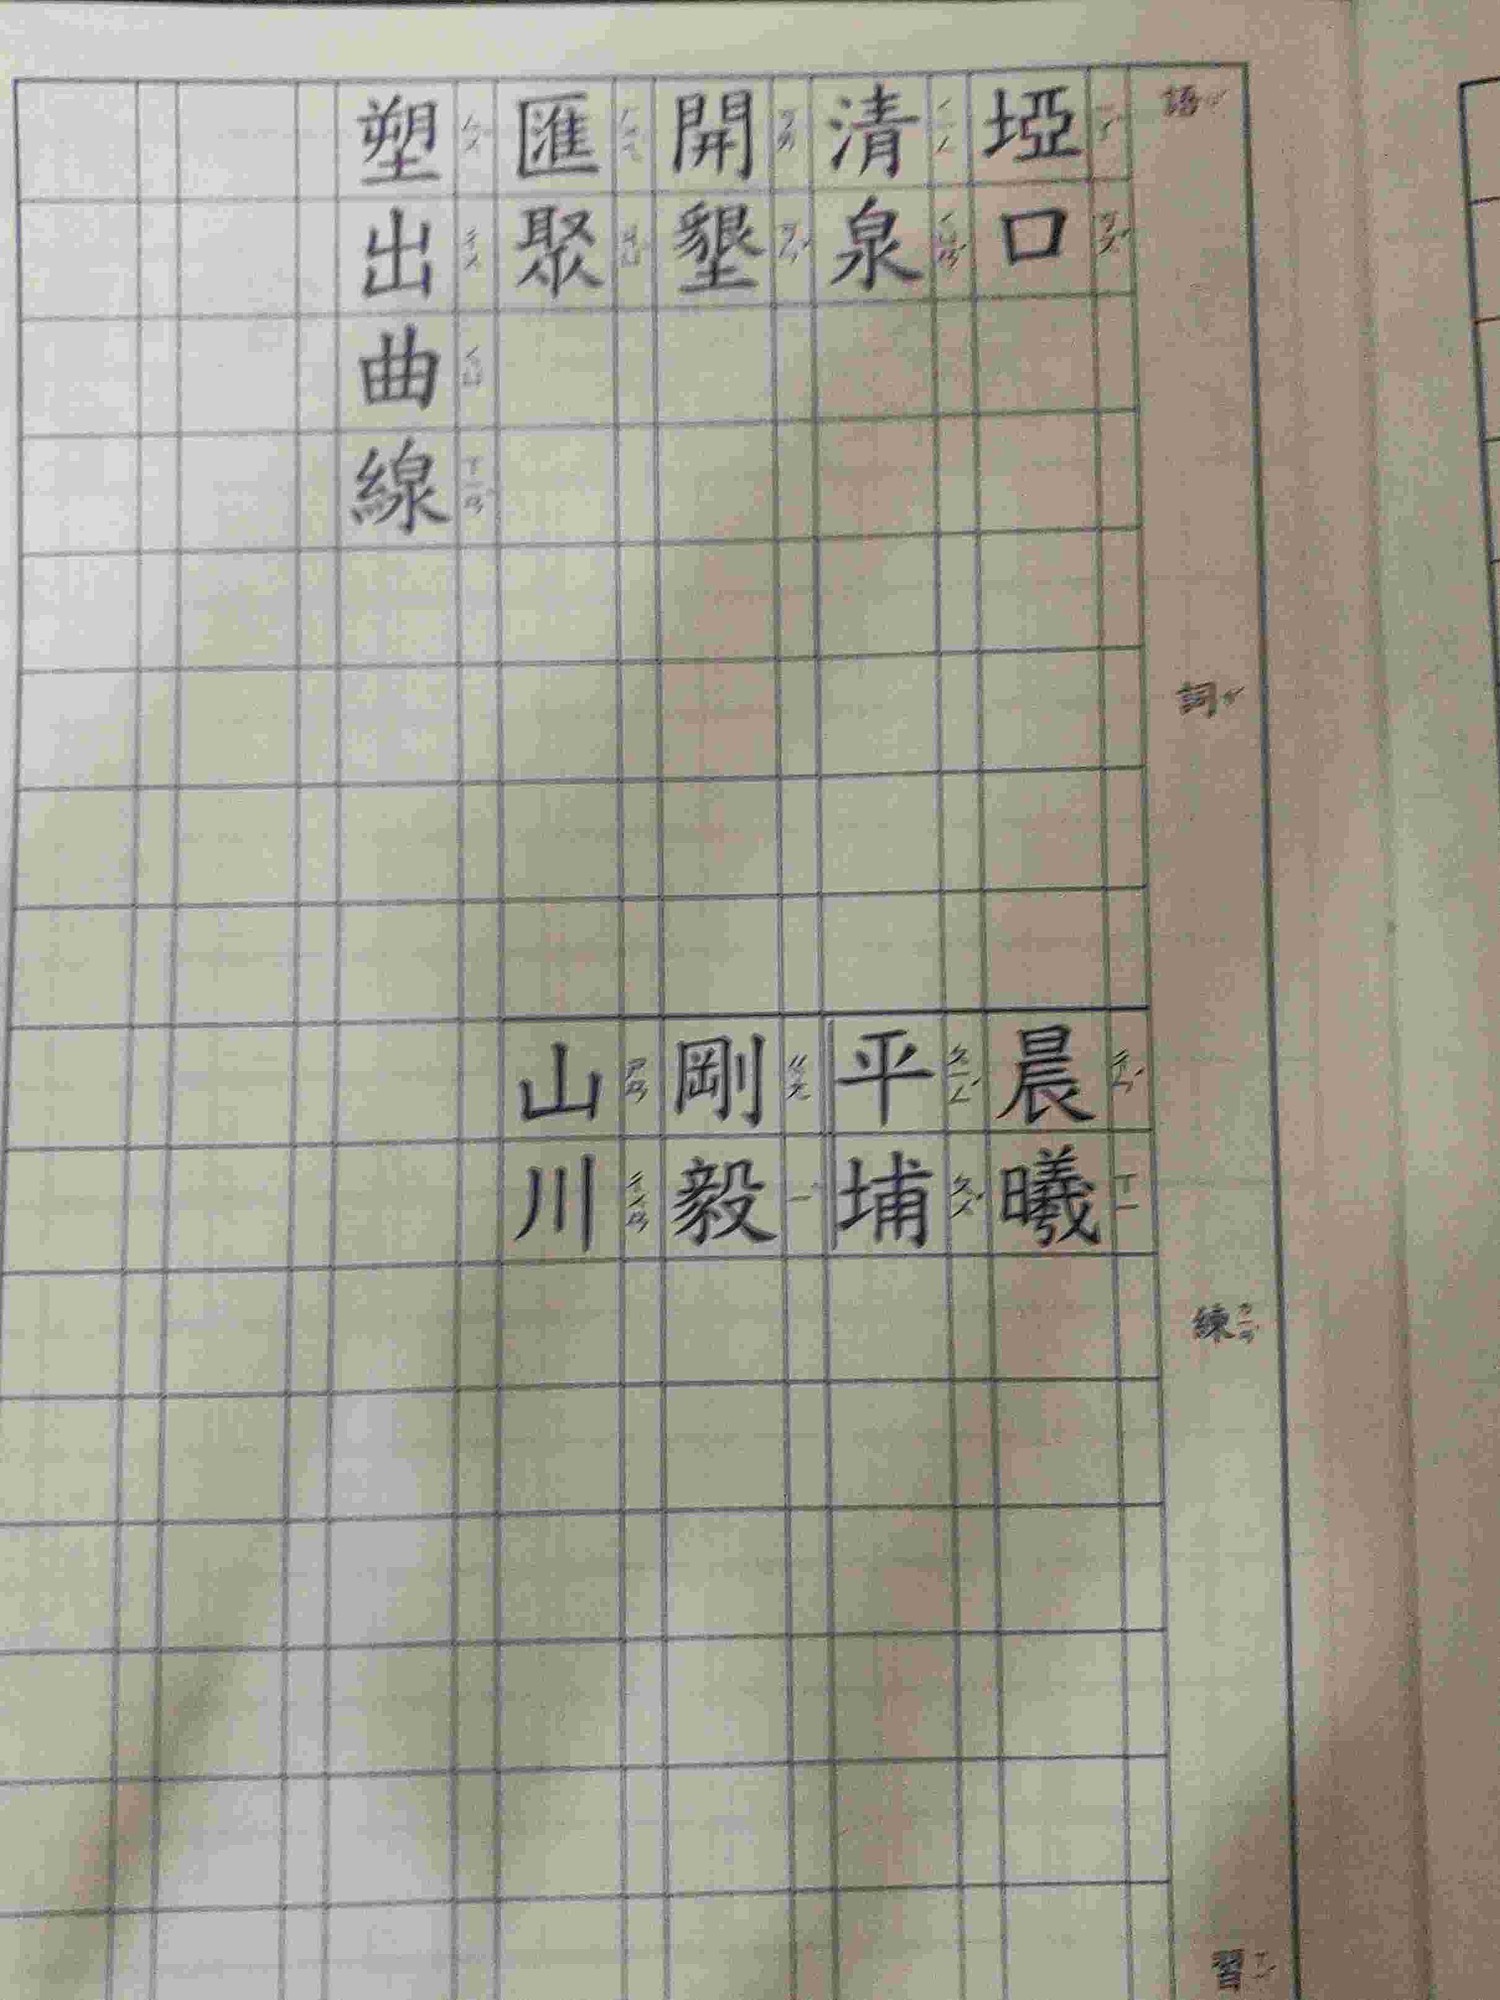 語詞練習
埡口
清泉
開墾
匯聚
塑出曲線
晨曦
平埔
剛毅
山川